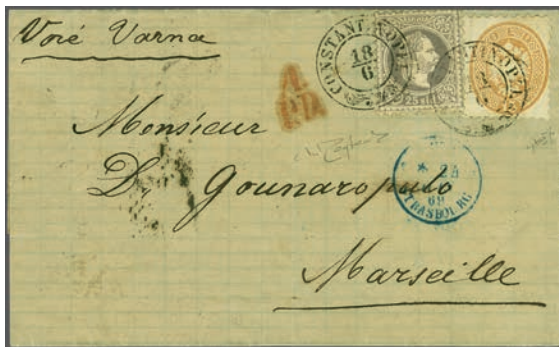 Voie Varna
CONSTANTINOPEL
18
6
P.D.
Monsieur
D. Gounaropulo
STRASBOURG
69
Marseille